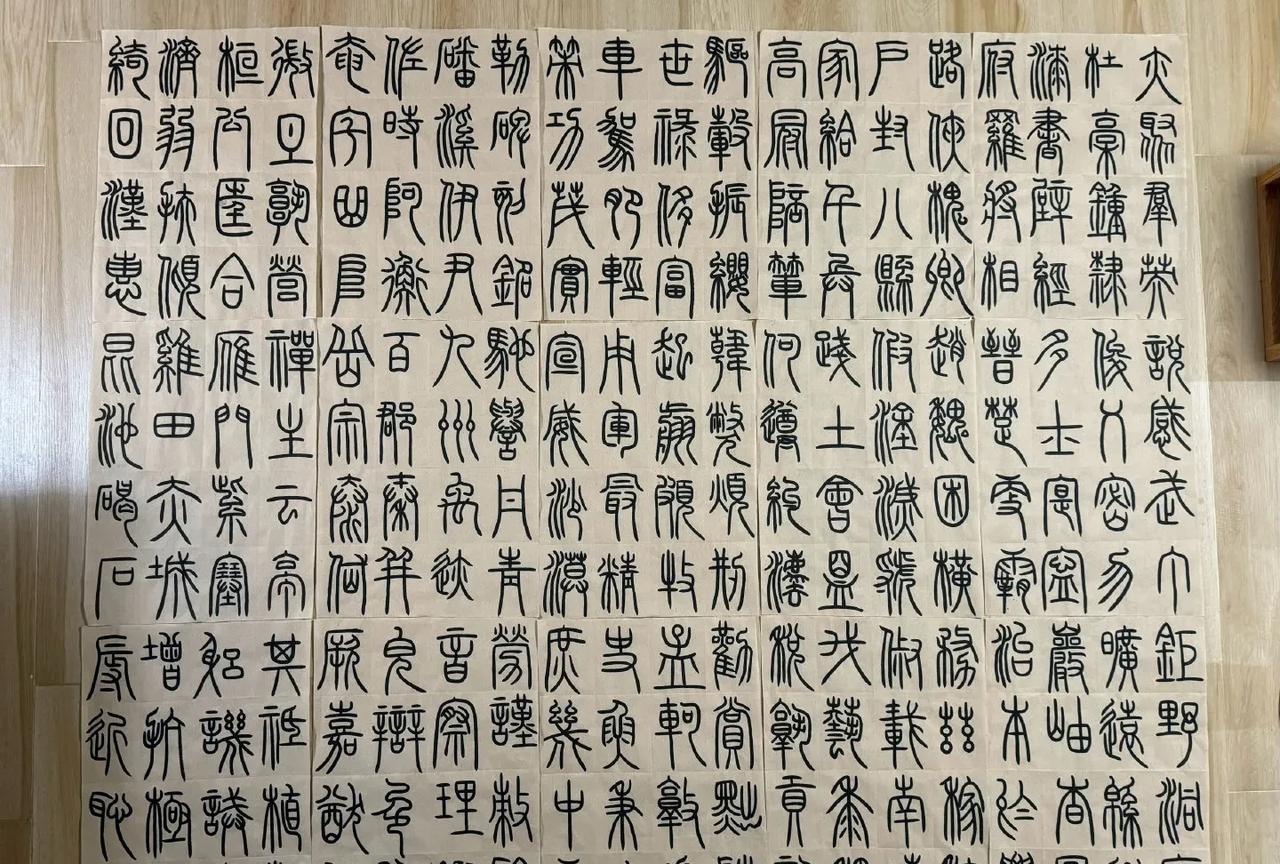 亦聚群英
杜稿鍾隸
漆書壁經
府羅將相
路俠槐卿
戶封八縣
家給千兵
高冠陪輦
驅轂振纓
世祿侈富
車駕肥輕
策功茂實
勒碑刻銘
磻溪伊尹
佐時阿衡
奄宅曲阜
微旦孰營
桓公匡合
濟弱扶傾
綺回漢惠
說感武丁
俊乂密勿
多士寔寧
晉楚更霸
趙魏困橫
假途滅虢
踐土會盟
何遵約法
韓弊煩刑
起翦頗牧
用軍最精
宣威沙漠
馳譽丹青
九州禹跡
百郡秦并
岳宗泰岱
禪主云亭
雁門紫塞
雞田赤城
昆池碣石
鉅野洞
曠遠綿
巖岫杳
治本於
務茲稼
俶載南
我藝黍
稅孰貢
勸賞黜
孟軻敦
史魚秉
庶幾中
勞謹敕
音察理
皃辯色
厥嘉猷
其祗植
躬譏誡
增抗極
辱近恥